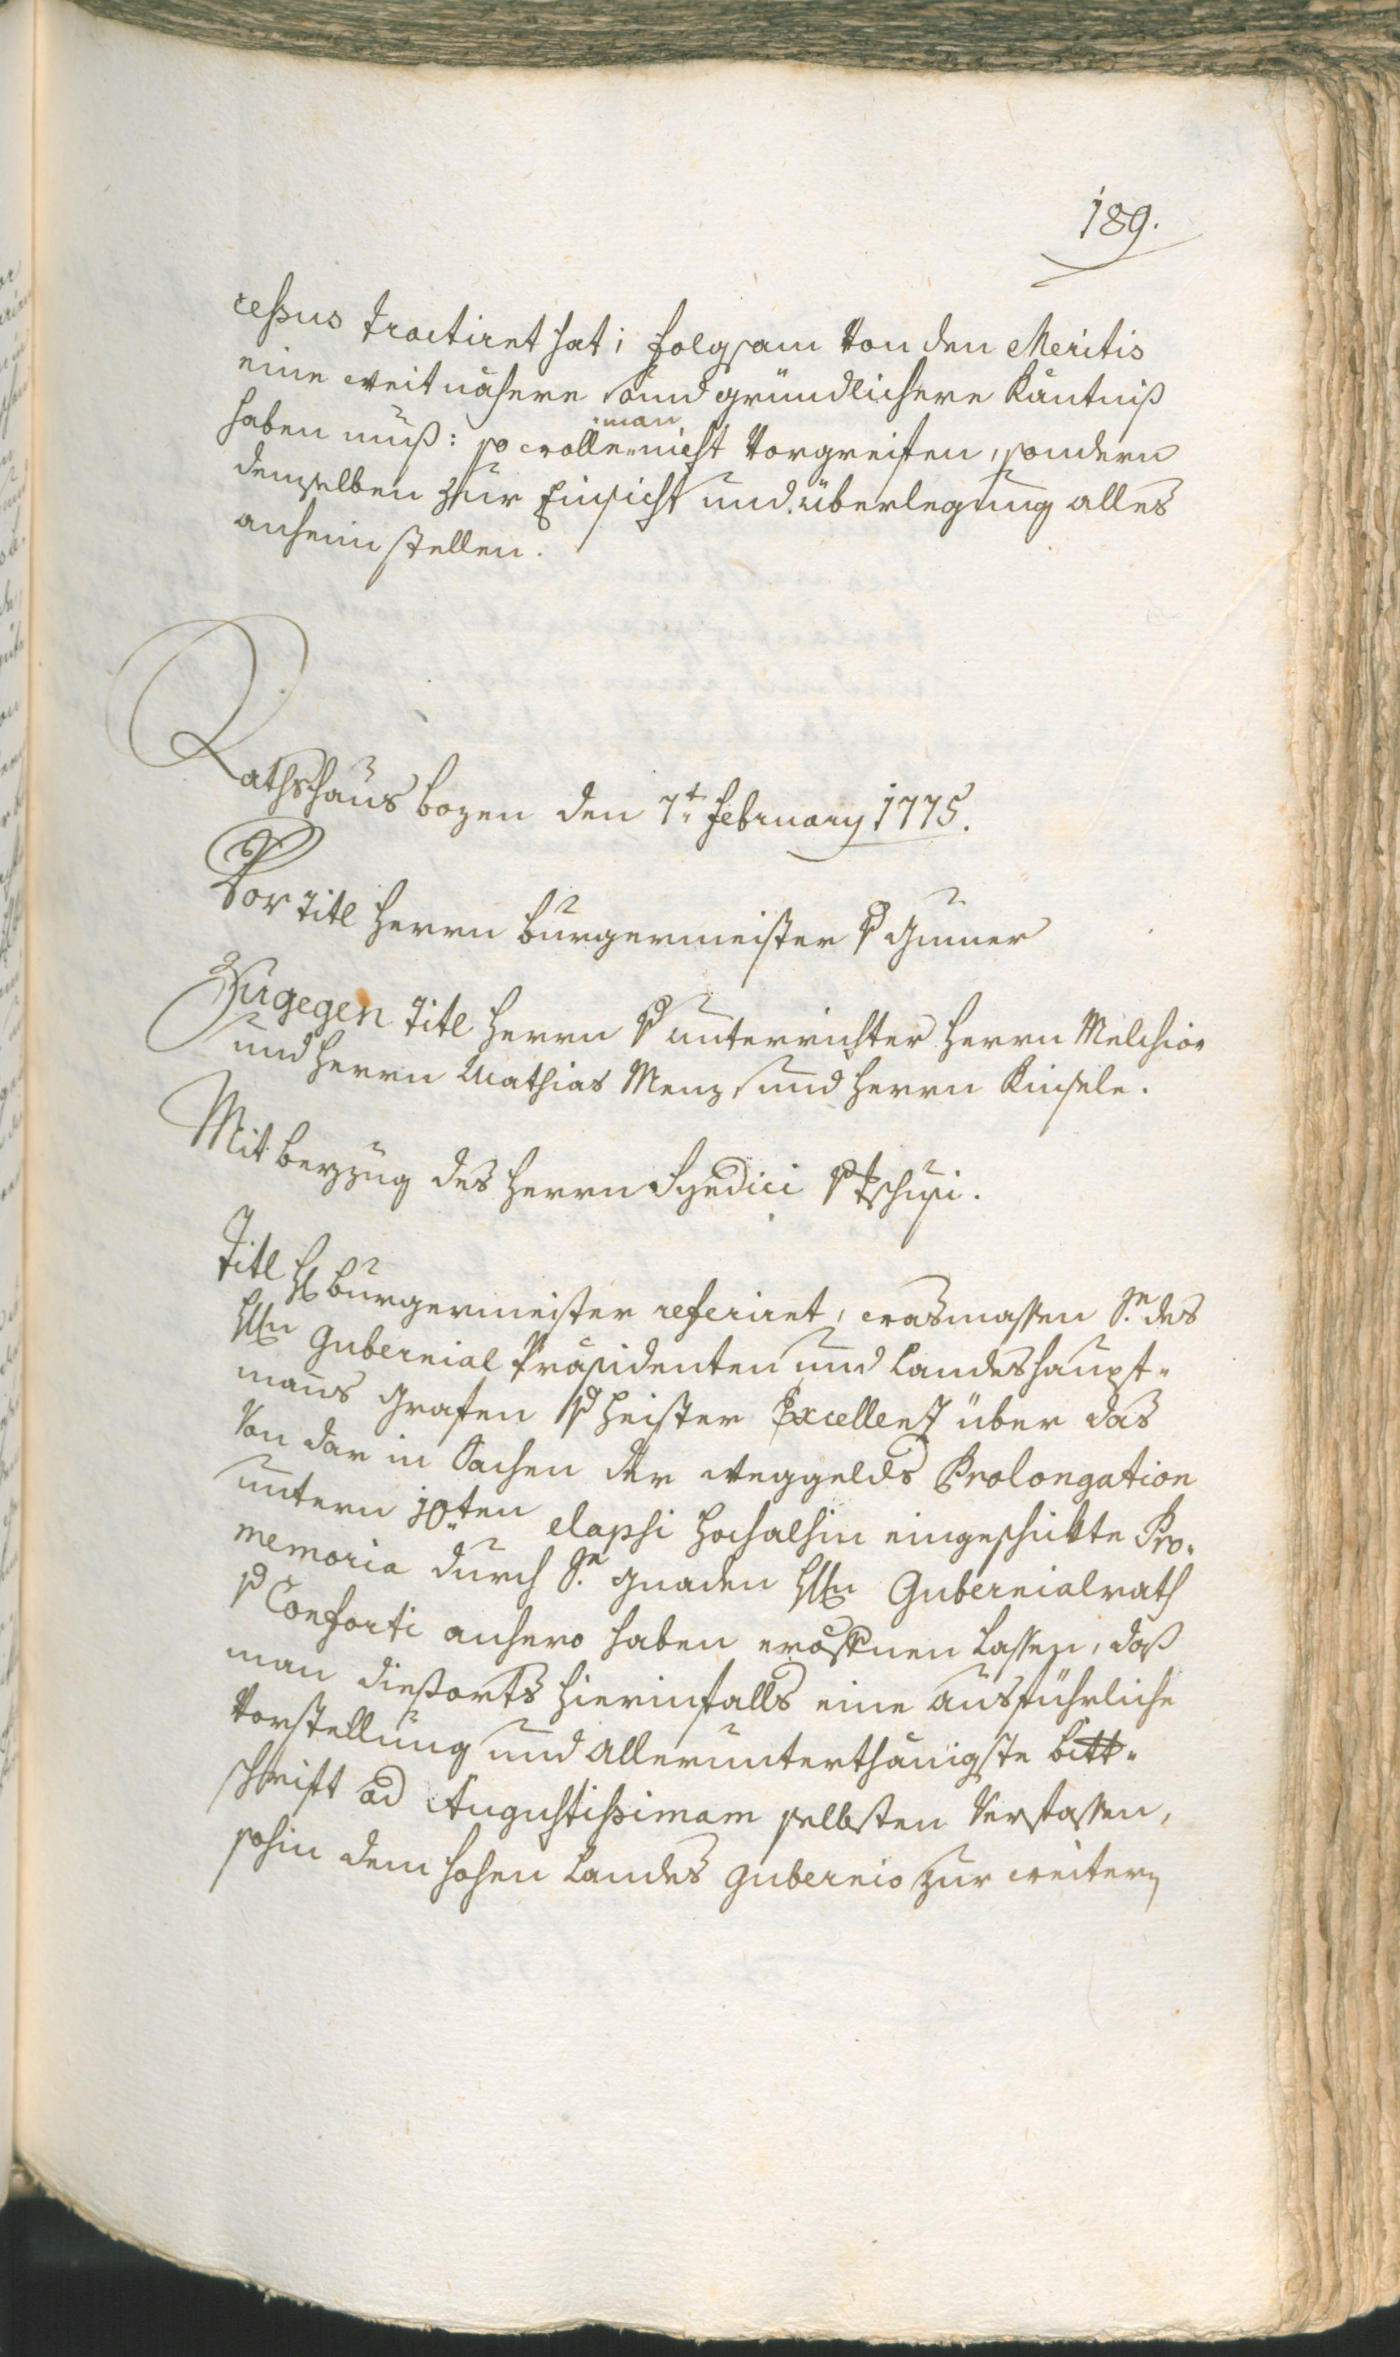 189.
cessus tractiret hat; folgsam von den Meritis
eine weit nähere und gründlichere Käntniß
haben muß: so wolle man nicht vorgreifen, sondern
demselben zur Einsicht und überlegung alles
anheim stellen.
Rathshaus bozen den 7t. february 1775.
Vor Titl herrn burgermeister v Gumer
Zugegen Titl herrn v unterrichter herrn Melchior
und herrn Mathias Menz, und herrn Kinsele.
Mit beyzug des herrn Syndici v Tschusi.
Titl H burgermeister referiret, wasmassen Sr. des
Hrn Gubernial Präsidenten und Landeshaupt-
mans Grafen v heister Excellenz über das
von dar in Sachen der weggelds Prolongation
untern 10ten elapsi hochalhin eingeschikte Pro-
memoria durch Sr. gnaden Hrn Gubernialrath
v Conforti anhero haben eröffnen lassen, daß
man dießorts hierinfalls eine ausführliche
Vorstellung und allerunterthänigste bitt-
schrift ad Augustissimam selbsten verfassen,
sohin dem hohen Landes gubernio zur weitern